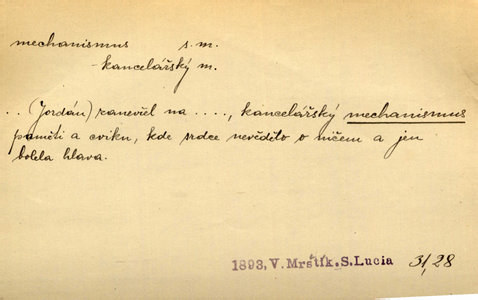 mechanismus s.m.
kancelářský m.
. . (Jordán) zanevřel na . . . . , kancelářský mechanismus
paměti a cviku, kde srdce nevědělo o ničem a jen
bolela hlava.
1893, V. Mrštík. S. Lucia 31, 28